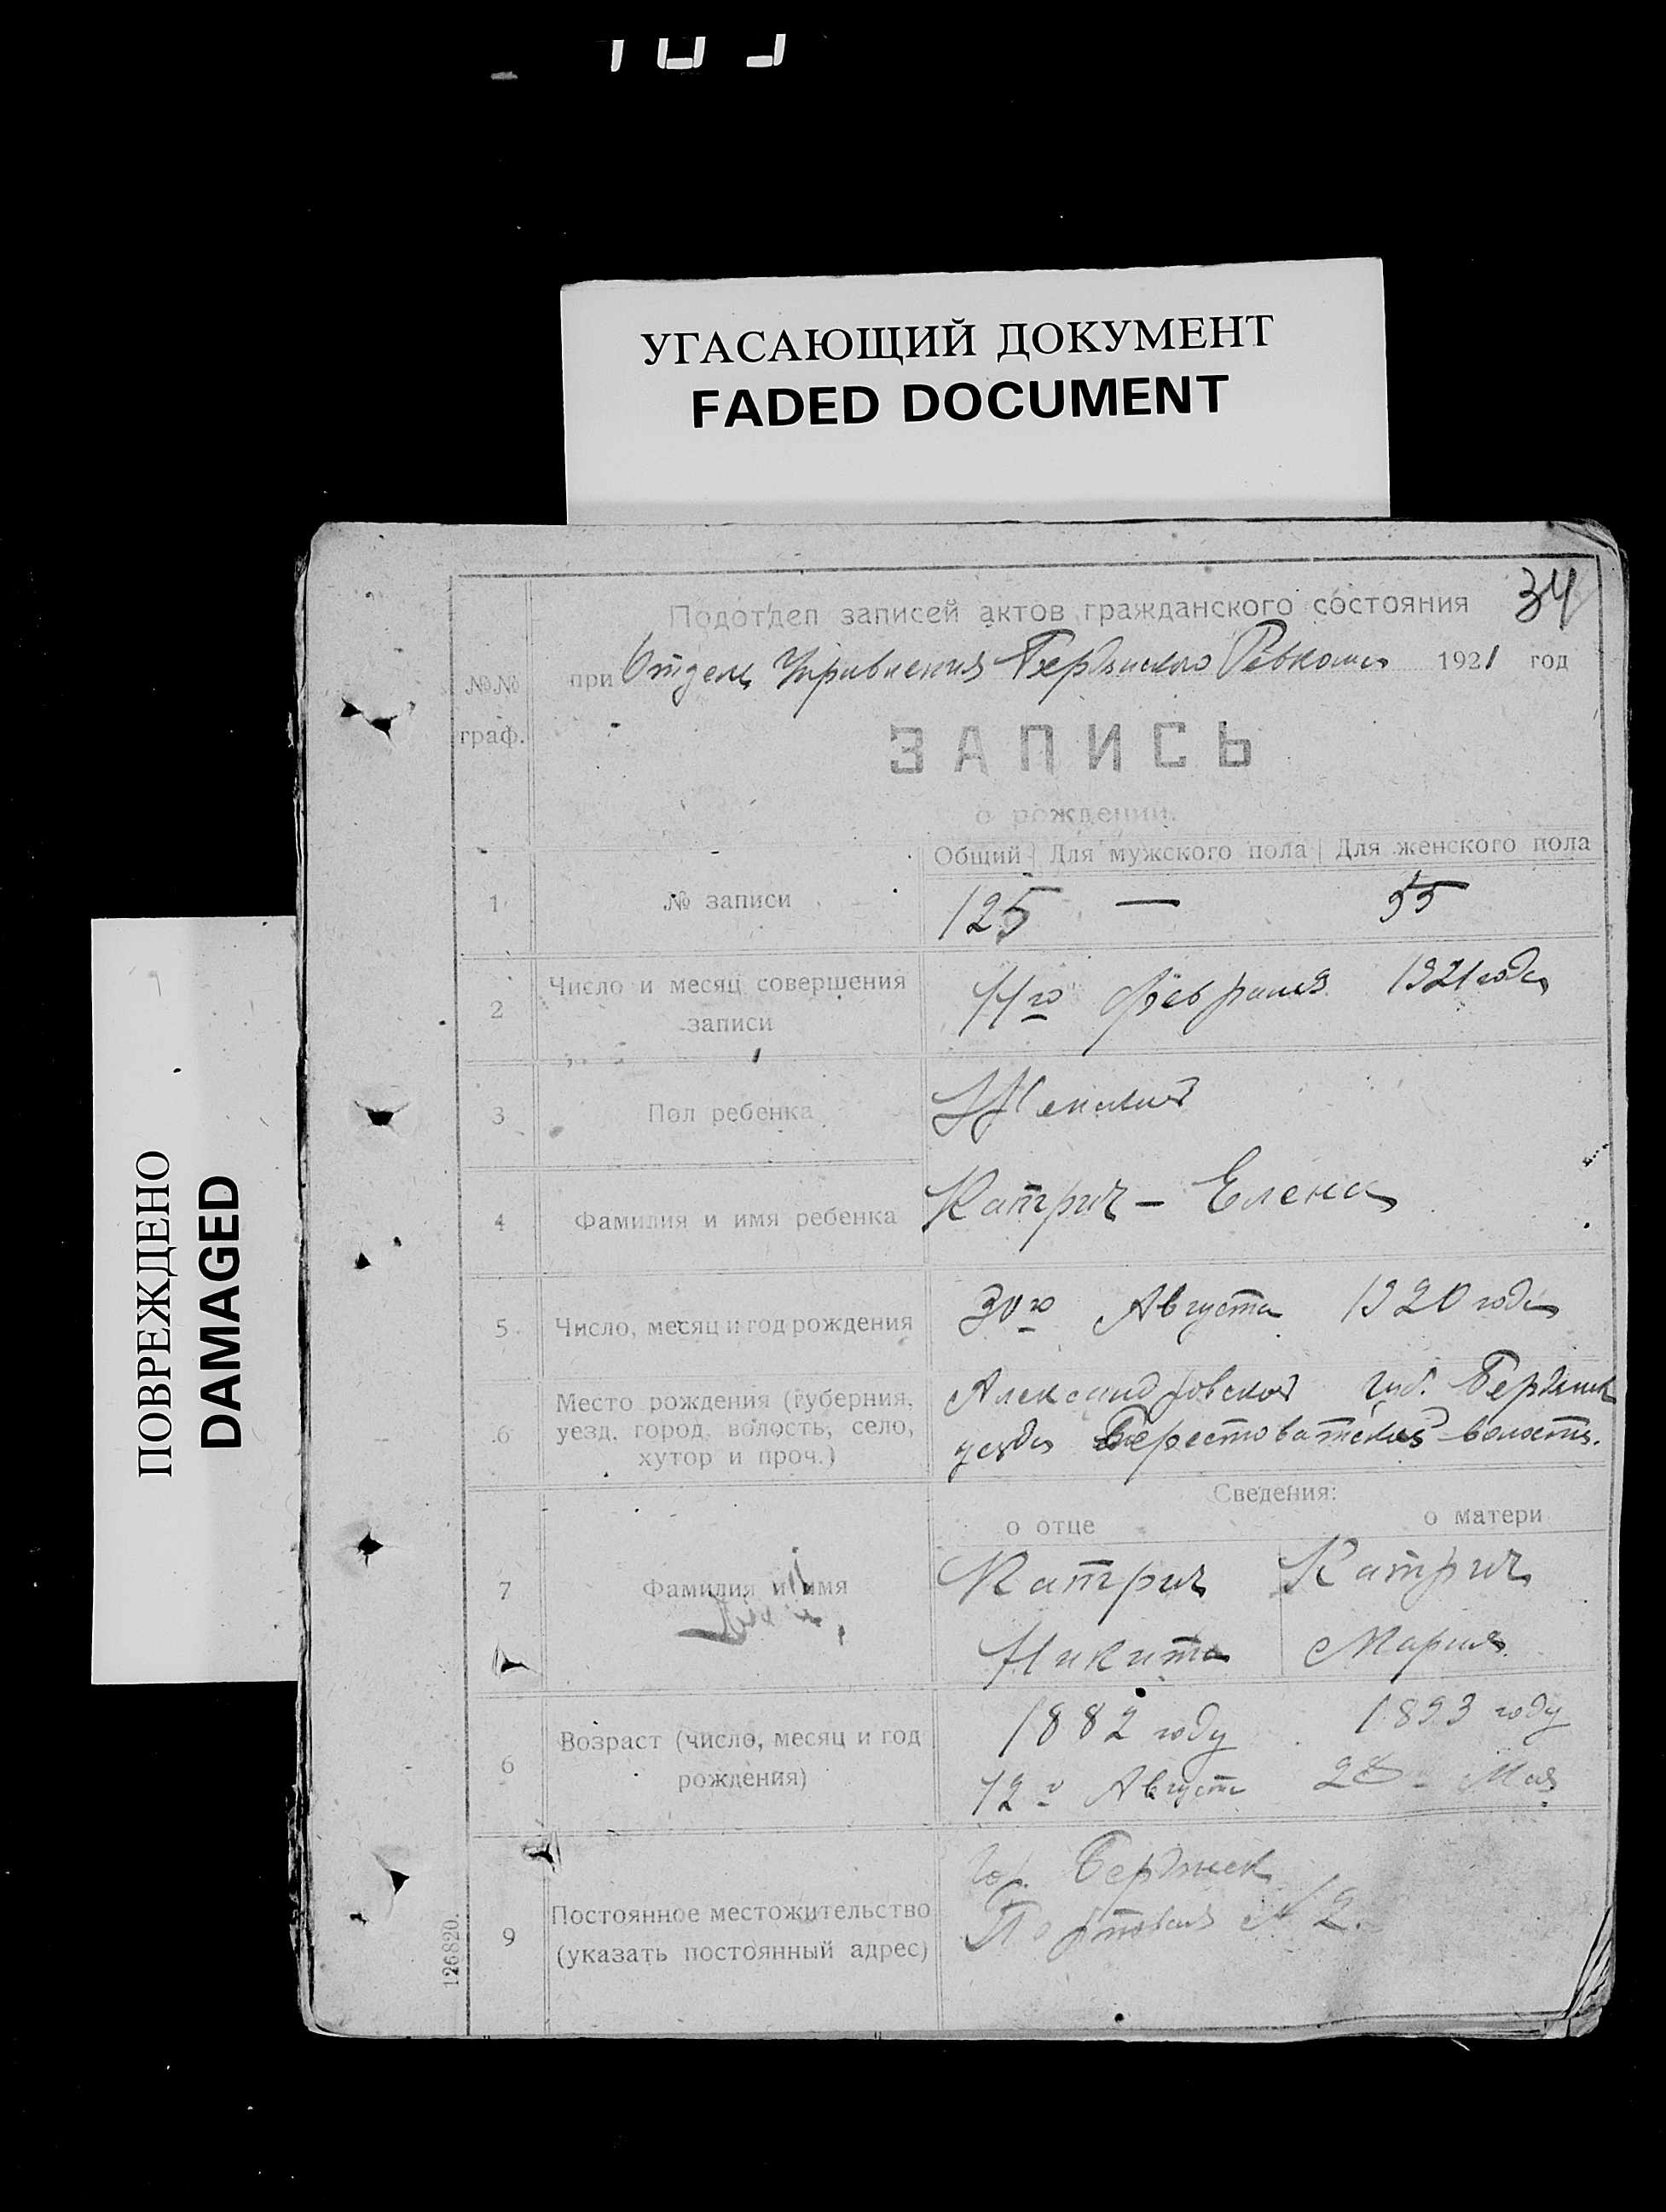 УГАСАЮЩИЙ ДОКУМЕНТ
FADED DOCUMENT
ПОВРЕЖДЕНО
DAMAGED
34
Подотдел записей актов гражданского состояния
при Отделе Управления Бердянского Ревкома 1921 год
№№ граф.
ЗАПИСЬ
о рождении.
Общий Для мужского пола Для женского пола
1 № записи 125 — 55
2 Число и месяц совершения записи 11го февраля 1921 года
3 Пол ребенка Женский
4 Фамилия и имя ребенка Катрич - Елена
5 Число, месяц и год рождения 30го Августа 1920 года
6 Место рождения (губерния, Александровской губ. Бердянск
уезд, город, волость, село, уезда Берестоватской волости.
хутор и проч.)
Сведения:
о отце о матери
7 Фамилия и имя Катрич Катрич
Никита Мария
6 Возраст (число, месяц и год 1882 году 1893 году
рождения) 12го Августа Мая
9 Постоянное местожительство гор. Бердянск
(указать постоянный адрес) Портовая № 2.
126820.